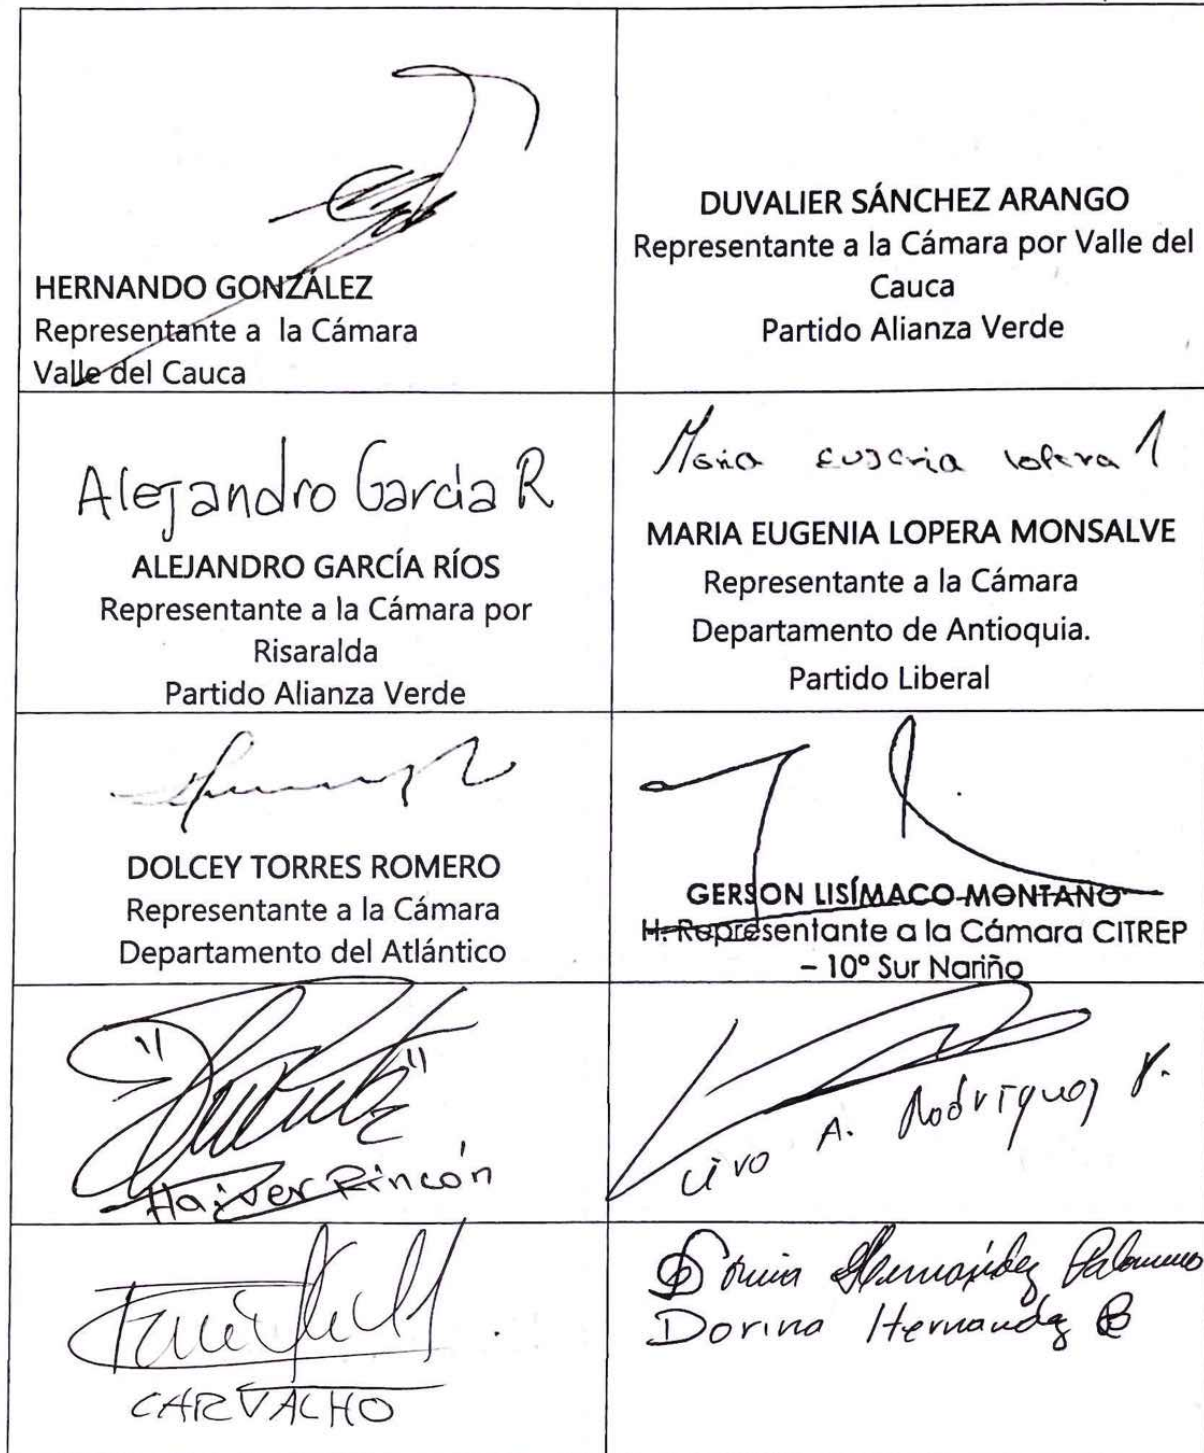 HERNANDO GONZÁLEZ
Representante a la Cámara
Valle del Cauca
DUVALIER SÁNCHEZ ARANGO
Representante a la Cámara por Valle del
Cauca
Partido Alianza Verde
Alejandro García R
ALEJANDRO GARCÍA RÍOS
Representante a la Cámara por
Risaralda
Partido Alianza Verde
Maria Eugenia Lopera
MARIA EUGENIA LOPERA MONSALVE
Representante a la Cámara
Departamento de Antioquia.
Partido Liberal
DOLCEY TORRES ROMERO
Representante a la Cámara
Departamento del Atlántico
GERSON LISÍMACO MONTAÑO
H. Representante a la Cámara CITREP
– 10° Sur Nariño
Haiver Rincón
A. Rodríguez V.
CARVACHO
Hernández Palomino
Dorina Hernandez